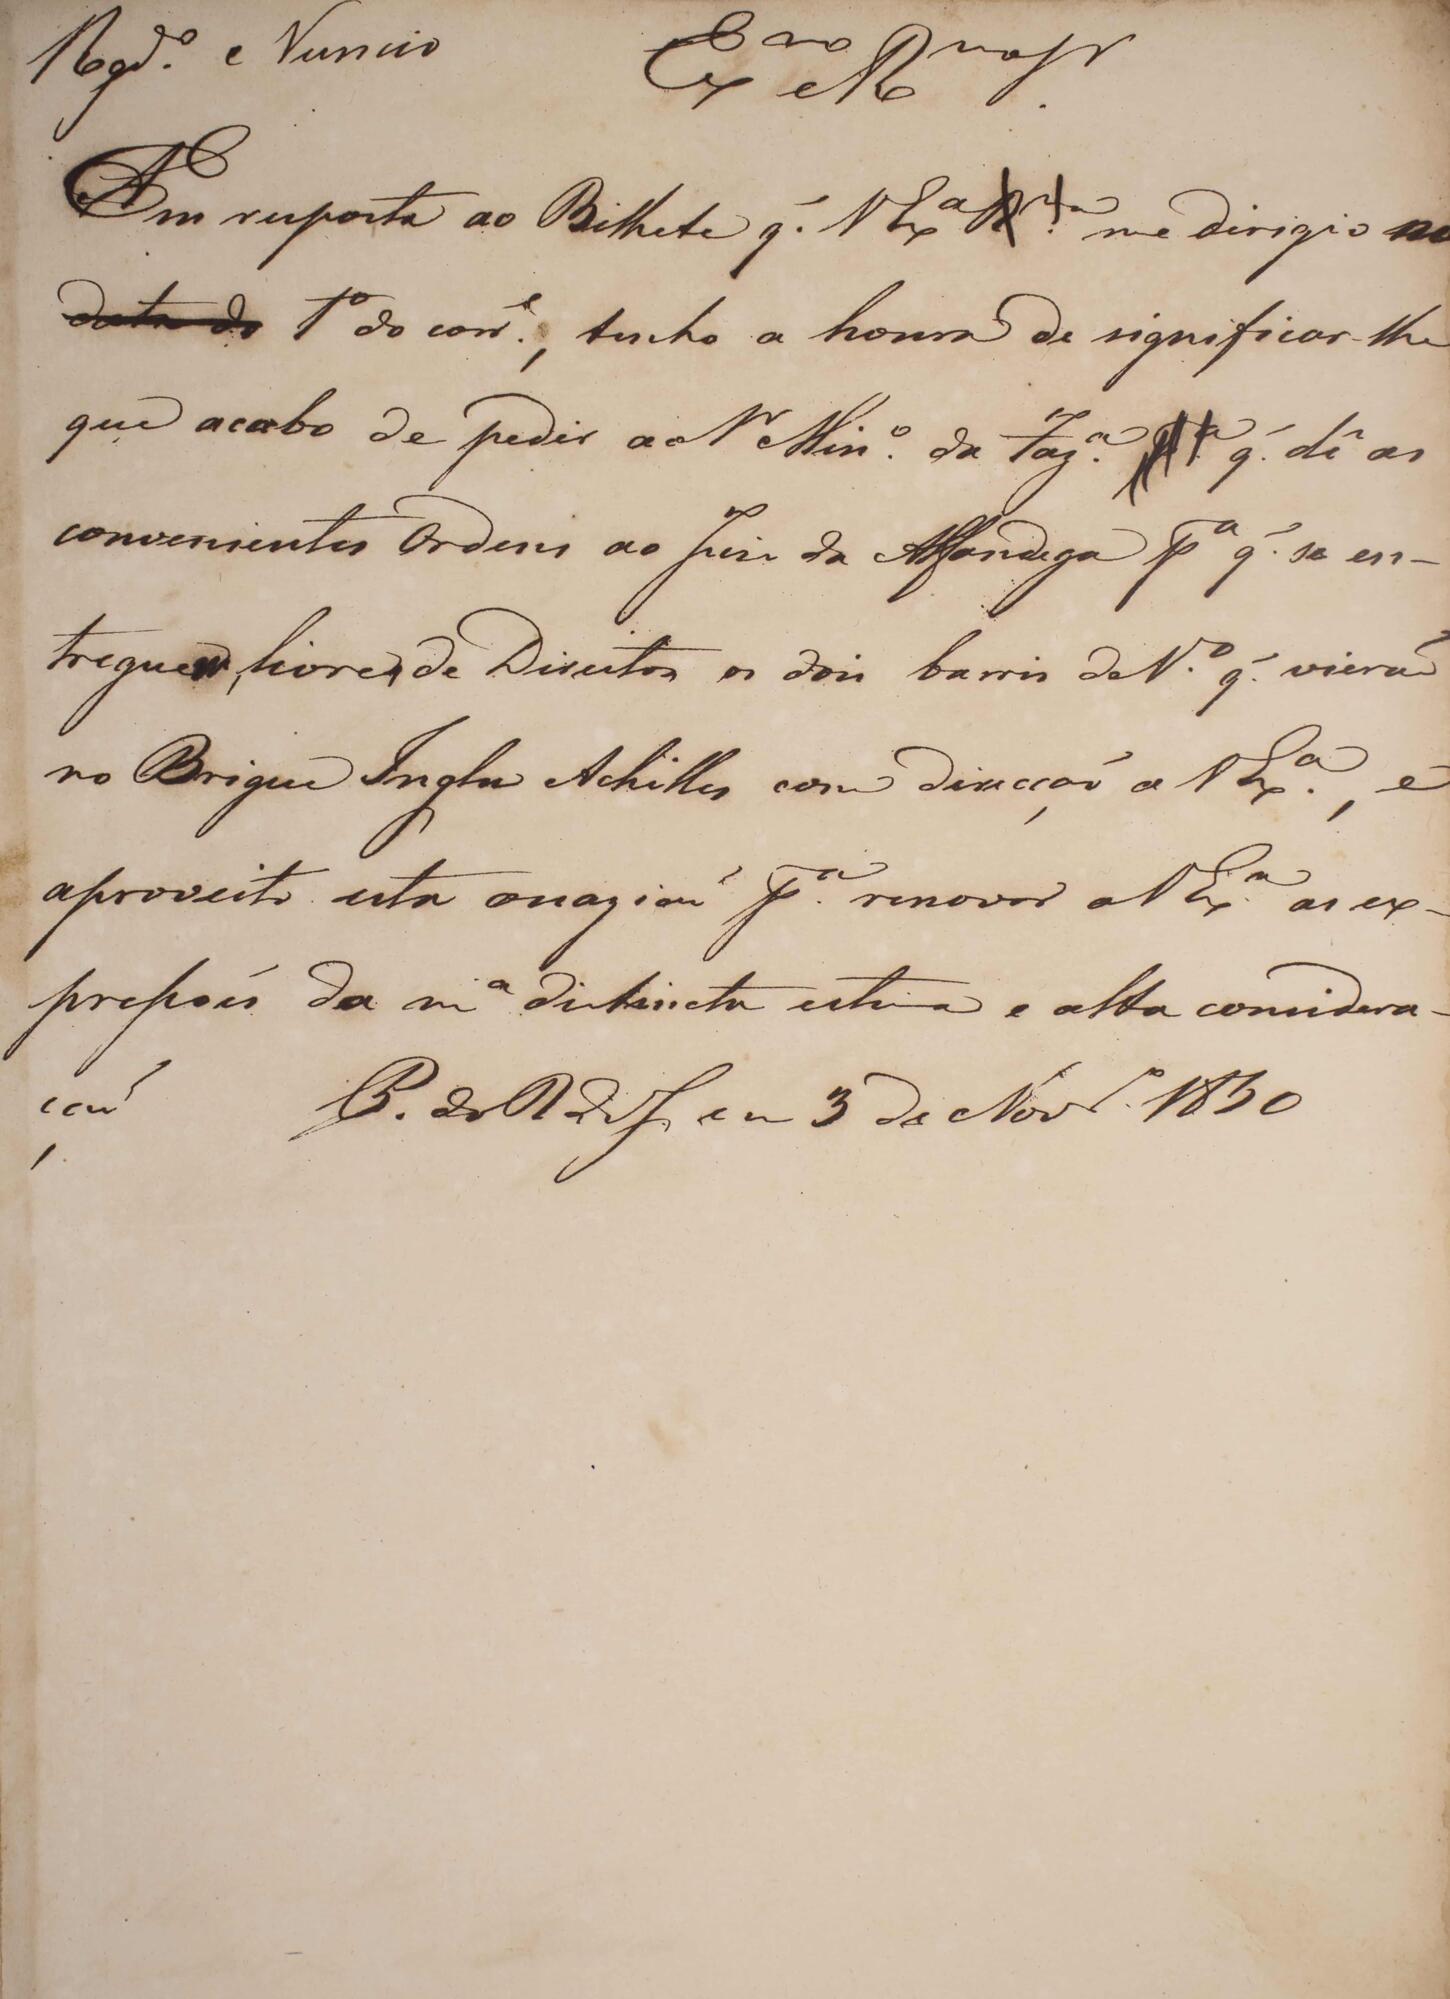 Regd.º e Nuncio
Exmo e Rmo Sr.
Em resposta ao Bilhete q. V Exª Rma me dirigio no
data do 1º do corre., tenho a honra de significar-lhe
que acabo de pedir ao Sr Min.º da Fazª. pª q. dê as
convenientes Ordens ao Juiz da Alfandega pª q. se en-
treguem, livres, de Direitos os dois barris de V.º q. vieraõ
no Brigue Inglez Achilles com direcçaõ a V Exª., e
aproveito esta occaziaõ pª. renovar a V Exª. as ex-
pressoẽs da mª distincta estima e alta considera-
çaõ P. do R de Jº. em 3 de Novrº. 1830